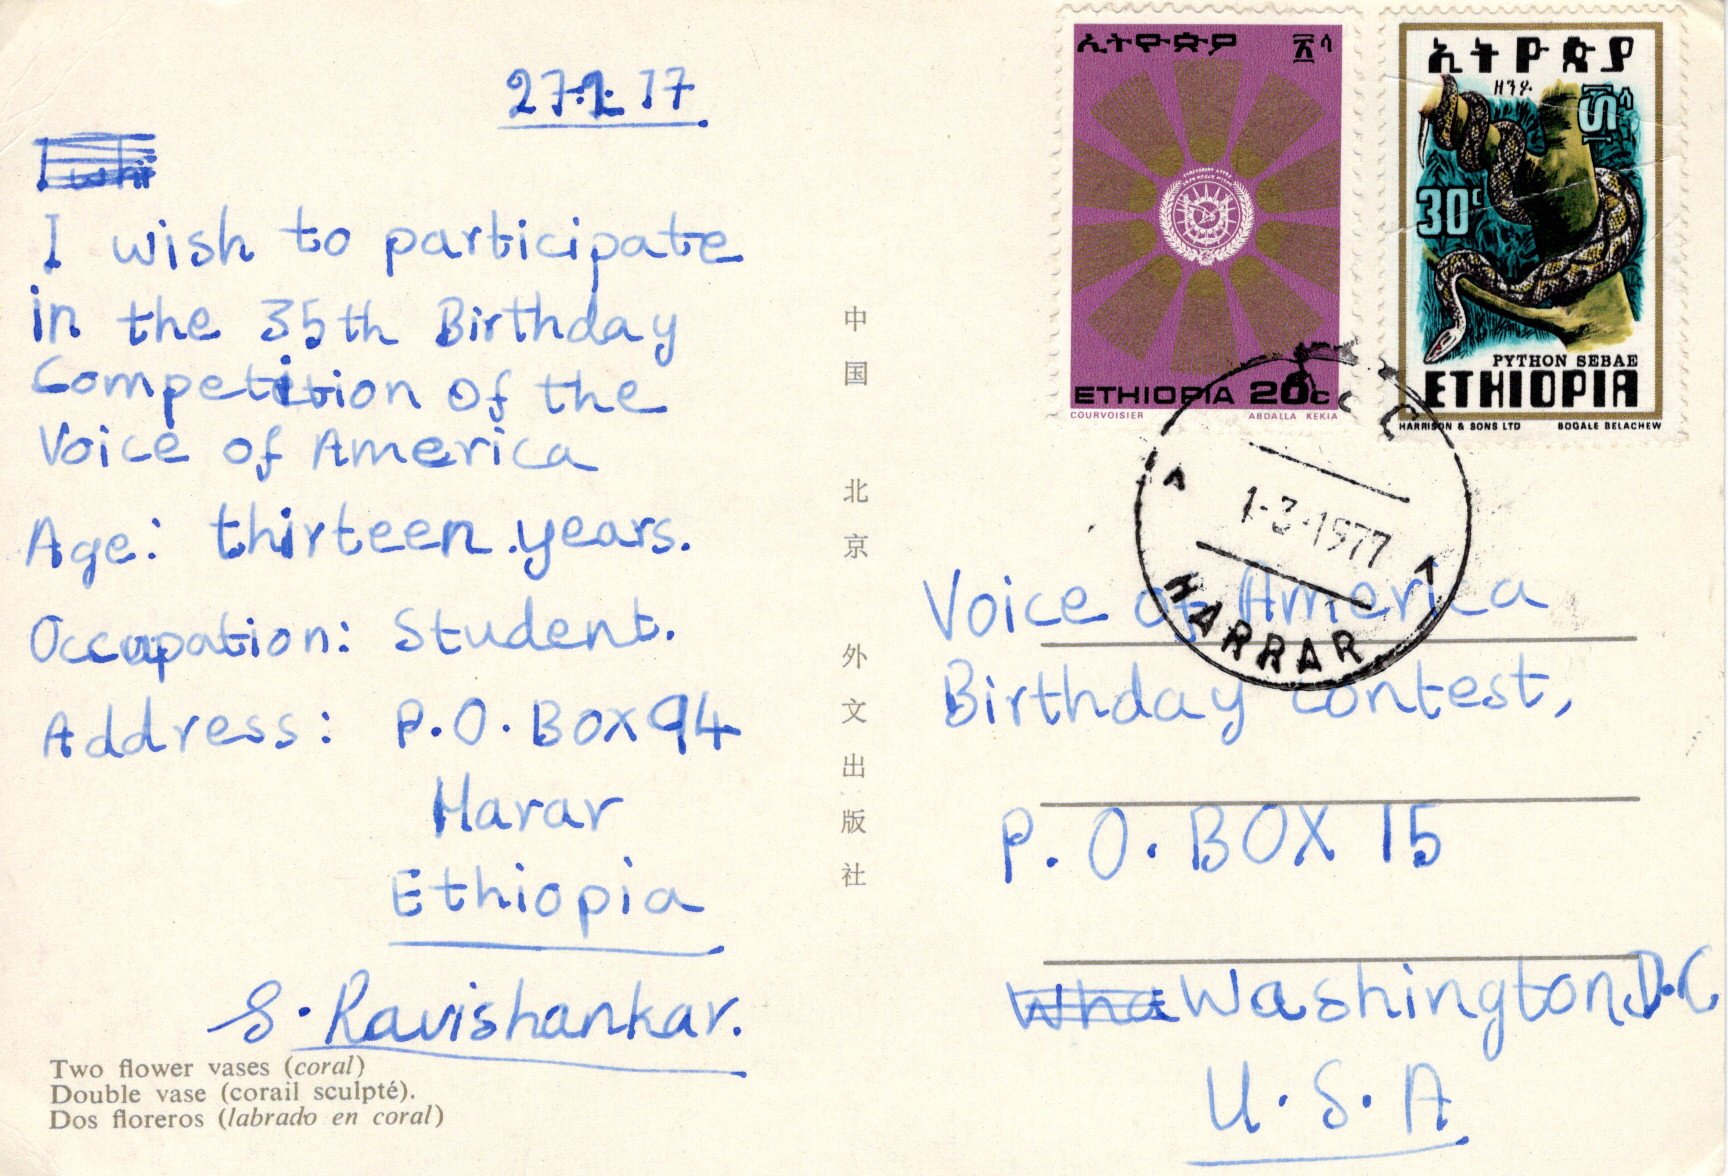 27.2.77
I whi
I wish to participate
in the 35th Birthday
Competition of the
Voice of America
Age: thirteen years.
Occupation: Student.
Address: P.O. BOX 94
Harar
Ethiopia
S. Ravishankar.
Two flower vases (coral)
Double vase (corail sculpté).
Dos floreros (labrado en coral)
中国 北京 外文出版社
ኢትዮጵያ
ETHIOPIA 20c
COURVOISIER ABDALLA KEKIA
ኢትዮጵያ
ዘንዶ
30c
PYTHON SEBAE
ETHIOPIA
HARRISON & SONS LTD BOGALE BELACHEW
1-3-1977
HARRAR
Voice of America
Birthday contest,
P.O. BOX 15
Wha Washington D.C
U.S.A